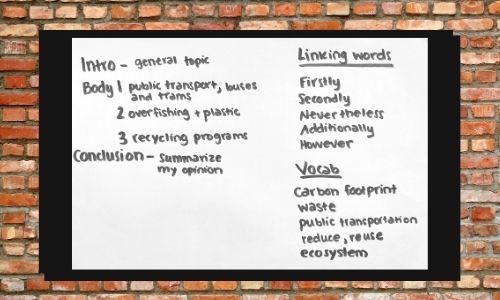 Intro - general topic
Body 1 public transport, buses
and trams
2 overfishing + plastic
3 recycling programs
Conclusion - Summarize
my opinion
Linking words
Firstly
Secondly
Nevertheless
Additionally
However
Vocab
Carbon footprint
waste
public transportation
reduce, reuse
ecosystem